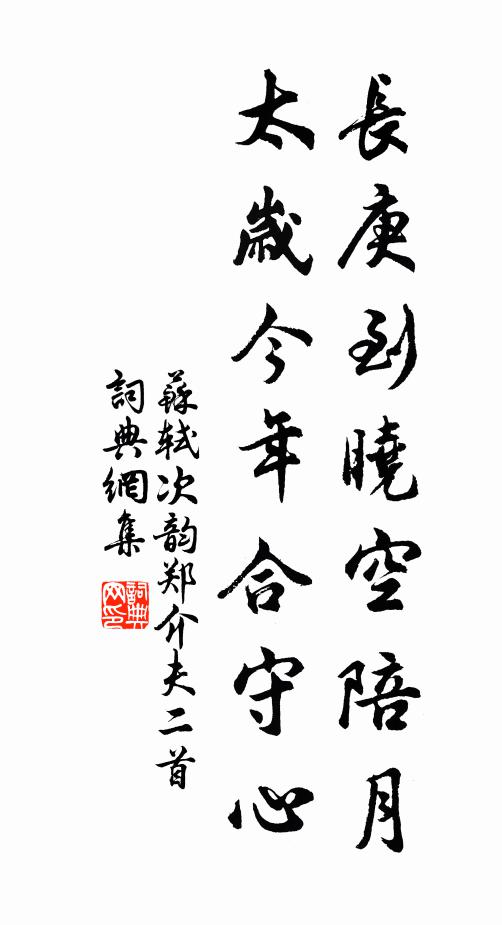 長庚到曉空陪月
太歲今年合守心
蘇轼次韵郑介夫二首
詞典網集
詞典网印